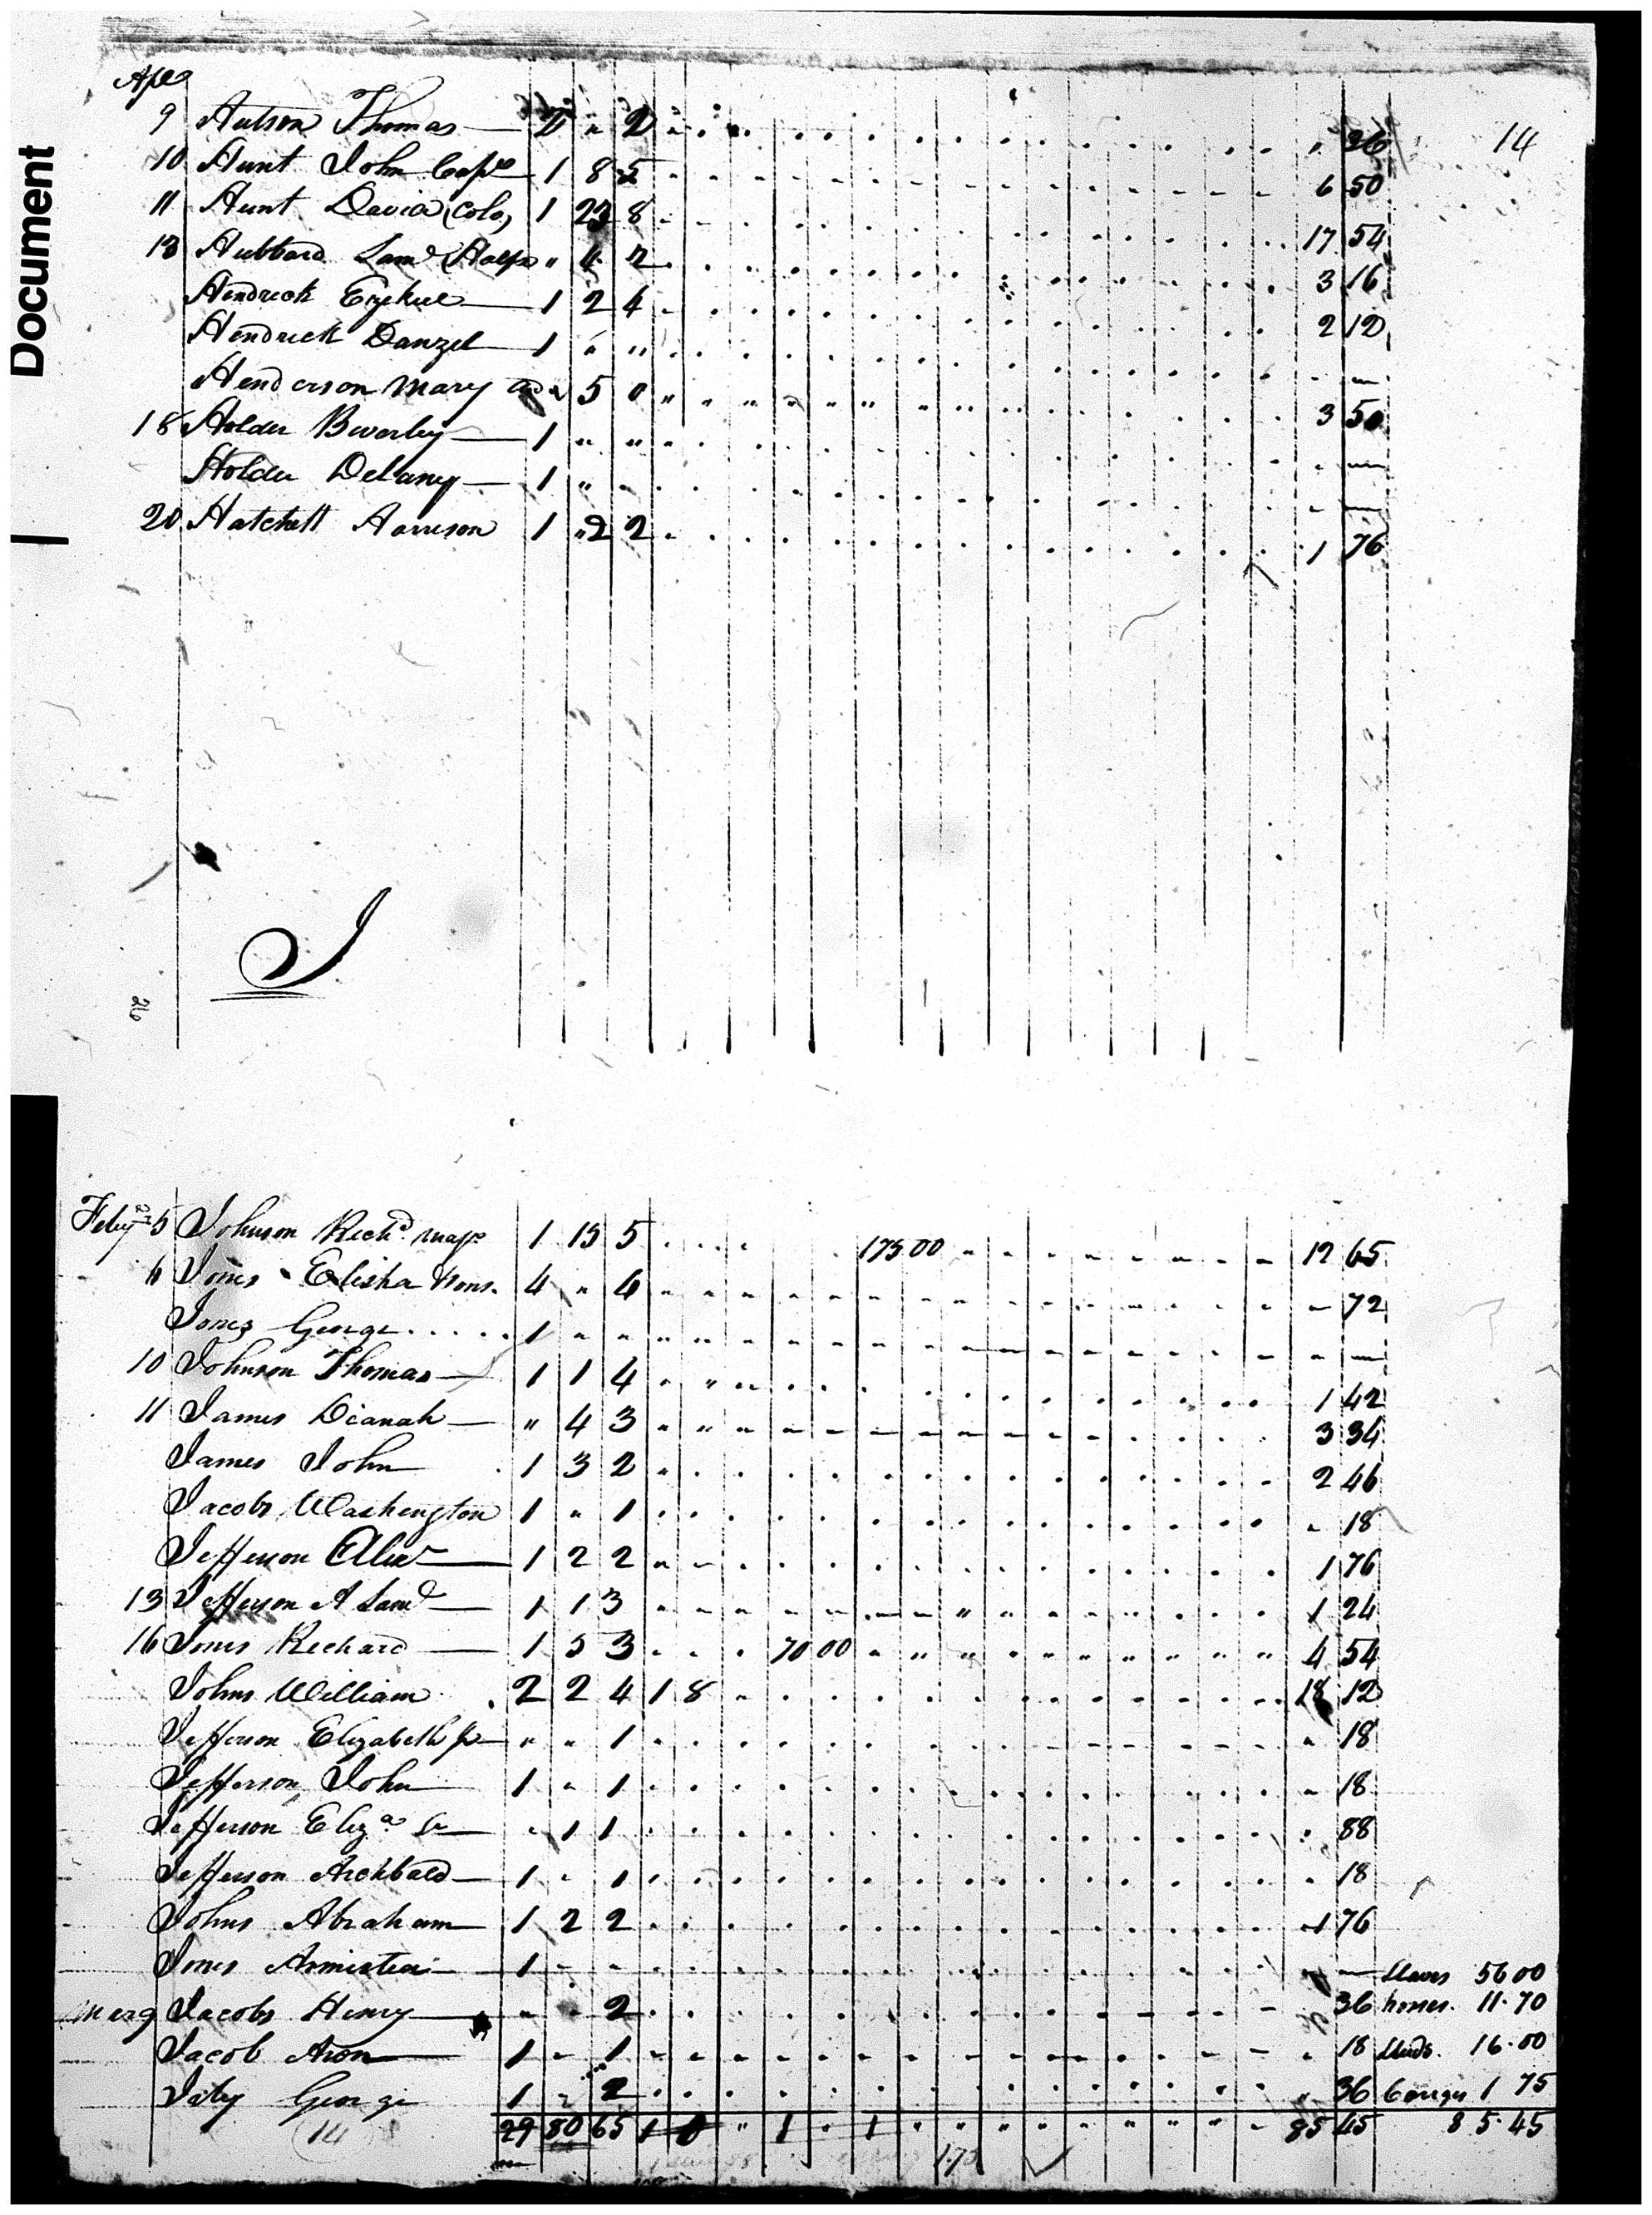 Document
Apl
14
9 Hutson Thomas 2 " 2 " 36
10 Hunt John Capt 1 8 5 6 50
11 Hunt David (Colo) 1 23 8 17 54
13 Hubbard Saml " 4 2 3 16
Hendrick Ezekiel 1 2 4 2 12
Hendrick Danzel 1 " "
Henderson Mary " 5 0 3 50
18 Holder Beverley 1 " "
Holder Delany 1 "
20 Hatchett Harrison 1 2 2 1 76
J
26
Feby 5 Johnson Richd Majr 1 15 5 175.00 12 65
6 Jones Elisha & sons 4 " 4 72
Jones George 1
10 Johnson Thomas 1 1 4 1 42
11 James Dianah " 4 3 3 34
James John 1 3 2 2 46
Jacobs Washington 1 " 1 18
Jefferson Alexr 1 2 2 1 76
13 Jefferson A Saml 1 1 3 1 24
16 Jones Richard 1 5 3 70 00 4 54
Johns William 2 2 4 1 8 18 12
Jefferson Elizabeth jr " " 1 18
Jefferson John 1 " 1 18
Jefferson Eliza Sr 1 1 88
Jefferson Archbald 1 " 1 18
Johns Abraham 1 2 2 1 76
Jones Armistead 1 Slaves 56 00
9 Jacobs Henry 2 36 horses. 11.70
Jacob Aron 1 " 1 18 Studs. 16.00
George 1 2 36 1 75
14 29 80 65 1 " 1 1 85 45 85.45